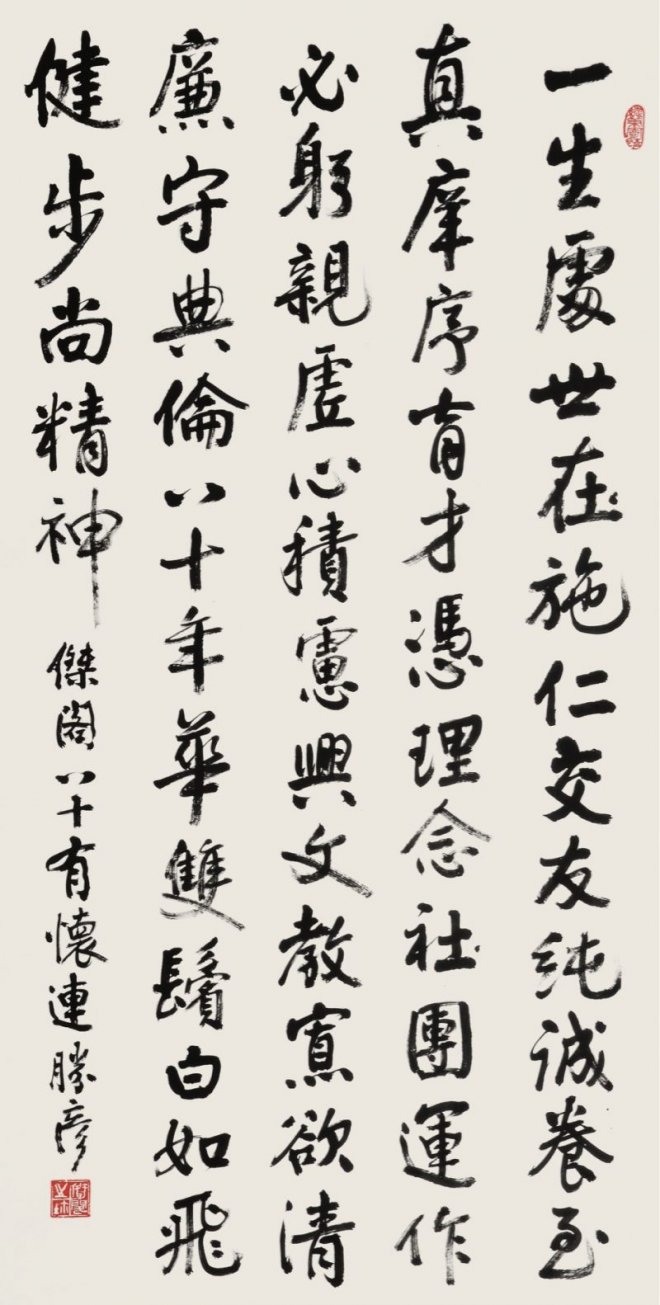 一生處世在施仁交友純誠養至
真庠序育才憑理念社團運作
必躬親虛心積慮興文教寡欲清
廉守典倫八十年華雙鬢白如飛
健步尚精神
傑閣八十有懷連勝彥